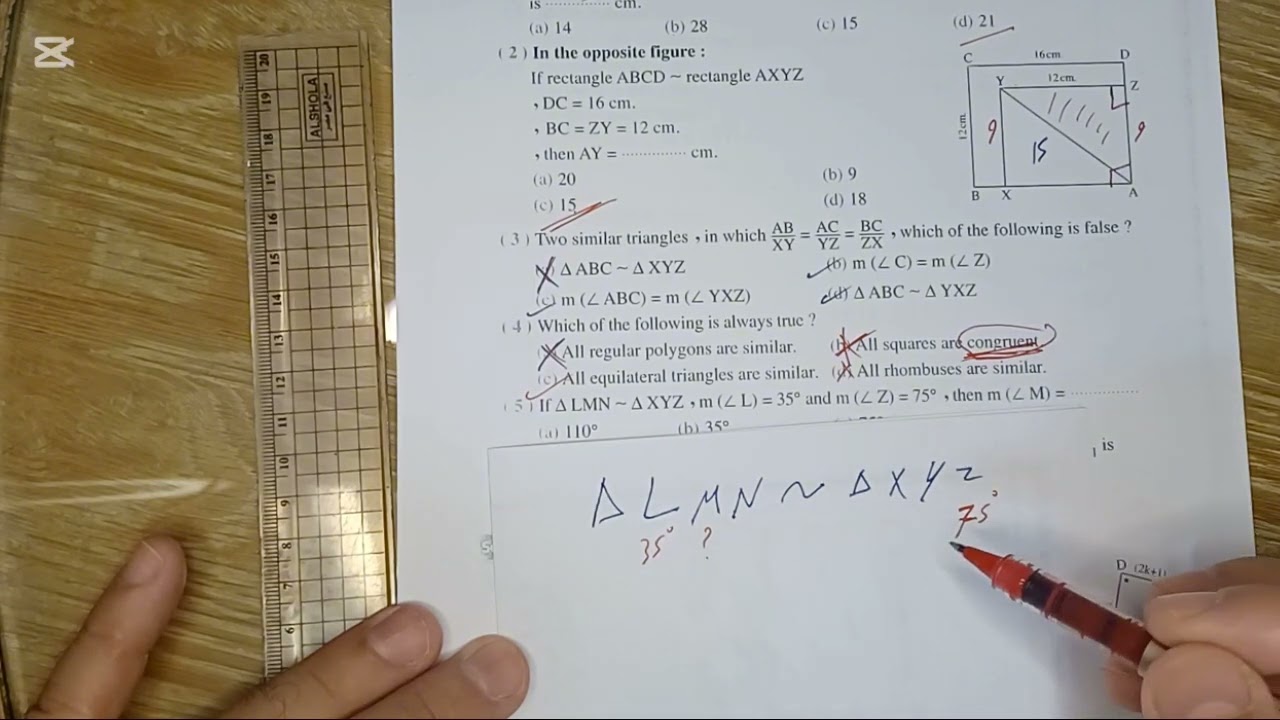 is ............... cm.
(a) 14 (b) 28 (c) 15 (d) 21
( 2 ) In the opposite figure :
If rectangle ABCD ~ rectangle AXYZ
, DC = 16 cm.
, BC = ZY = 12 cm.
, then AY = ............... cm.
(a) 20 (b) 9
(c) 15 (d) 18
C 16cm. D
Y 12cm. Z
12cm. 9 15 9
B X A
( 3 ) Two similar triangles , in which AB/XY = AC/YZ = BC/ZX , which of the following is false ?
Δ ABC ~ Δ XYZ (b) m (∠ C) = m (∠ Z)
(c) m (∠ ABC) = m (∠ YXZ) (d) Δ ABC ~ Δ YXZ
( 4 ) Which of the following is always true ?
All regular polygons are similar. (b) All squares are congruent
(c) All equilateral triangles are similar. All rhombuses are similar.
( 5 ) If Δ LMN ~ Δ XYZ , m (∠ L) = 35° and m (∠ Z) = 75° , then m (∠ M) = ...............
(a) 110° (b) 35°
is
Δ L M N ~ Δ X Y Z
35° ? 75°
D (2k+1)
ALSHOLA
20
19
18
17
16
15
14
13
12
11
10
9
8
7
6